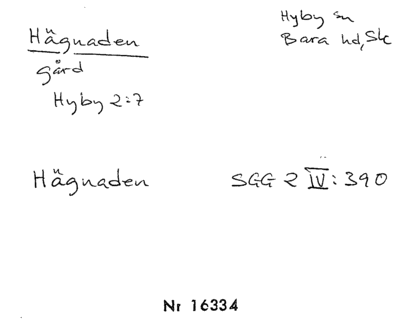 Hägnaden
gård
Hyby 2:7
Hyby sn
Bara hd, Sk
Hägnaden SGG 2 IV: 390
Nr 16334